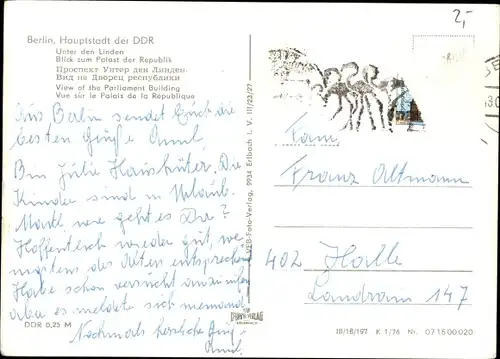 2,-
Berlin, Hauptstadt der DDR
Unter den Linden
Blick zum Palast der Republik
Проспект Унтер ден Линден
Вид на Дворец республики
View of the Parliament Building
Vue sur le Palais de la République
Aus Berlin sendet Euch die
besten Grüße
Bin Haushüter. Die
Kinder sind in Urlaub.
wie geht es Dir?
Hoffentlich wieder gut, we
des Alten entsprechend
Habe schon versucht anzurufen
aber es meldete sich niemand
Nochmals herzliche
DDR 0,25 M
VEB-Foto-Verlag, 9934 Erlbach i. V. III/23/27
Fam.
Franz Altmann
402 Halle
Landrain 147
III/18/197 K 1/76 Nr. 07 15 00 020